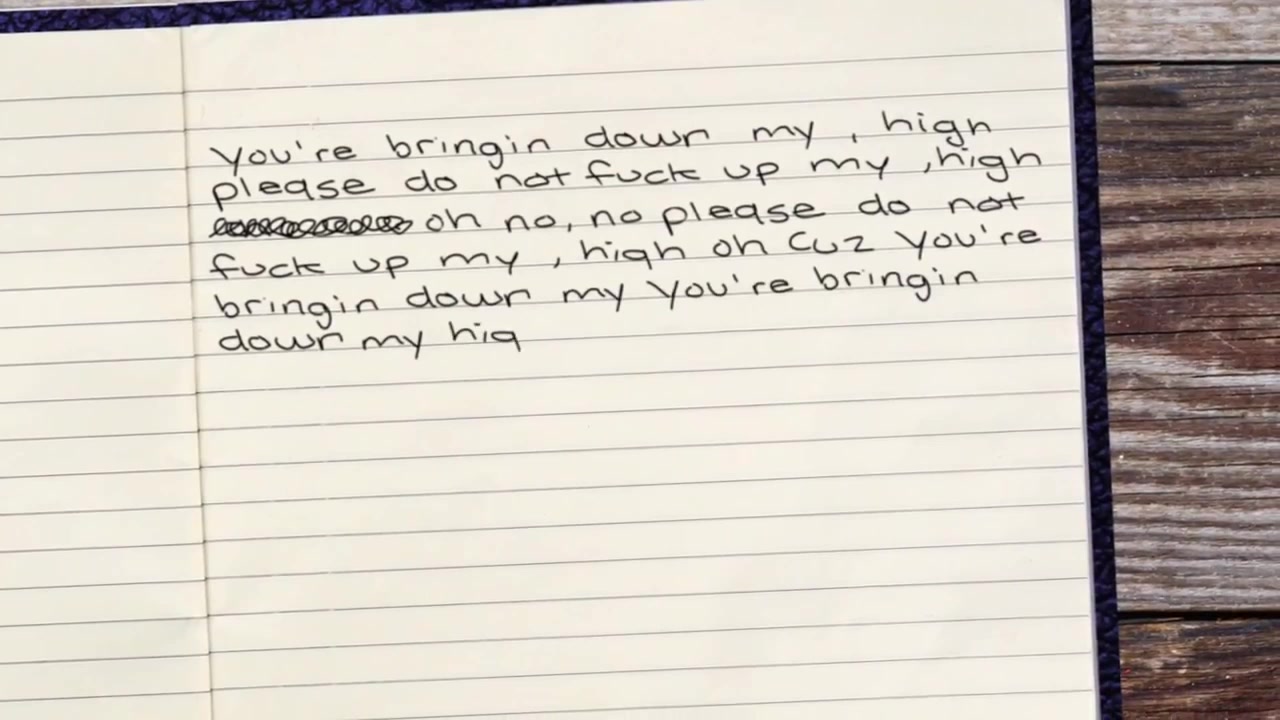 You're bringin down my , high
please do not fuck up my , high
oh no, no please do not
fuck up my , high oh cuz you're
bringin down my you're bringin
down my hig